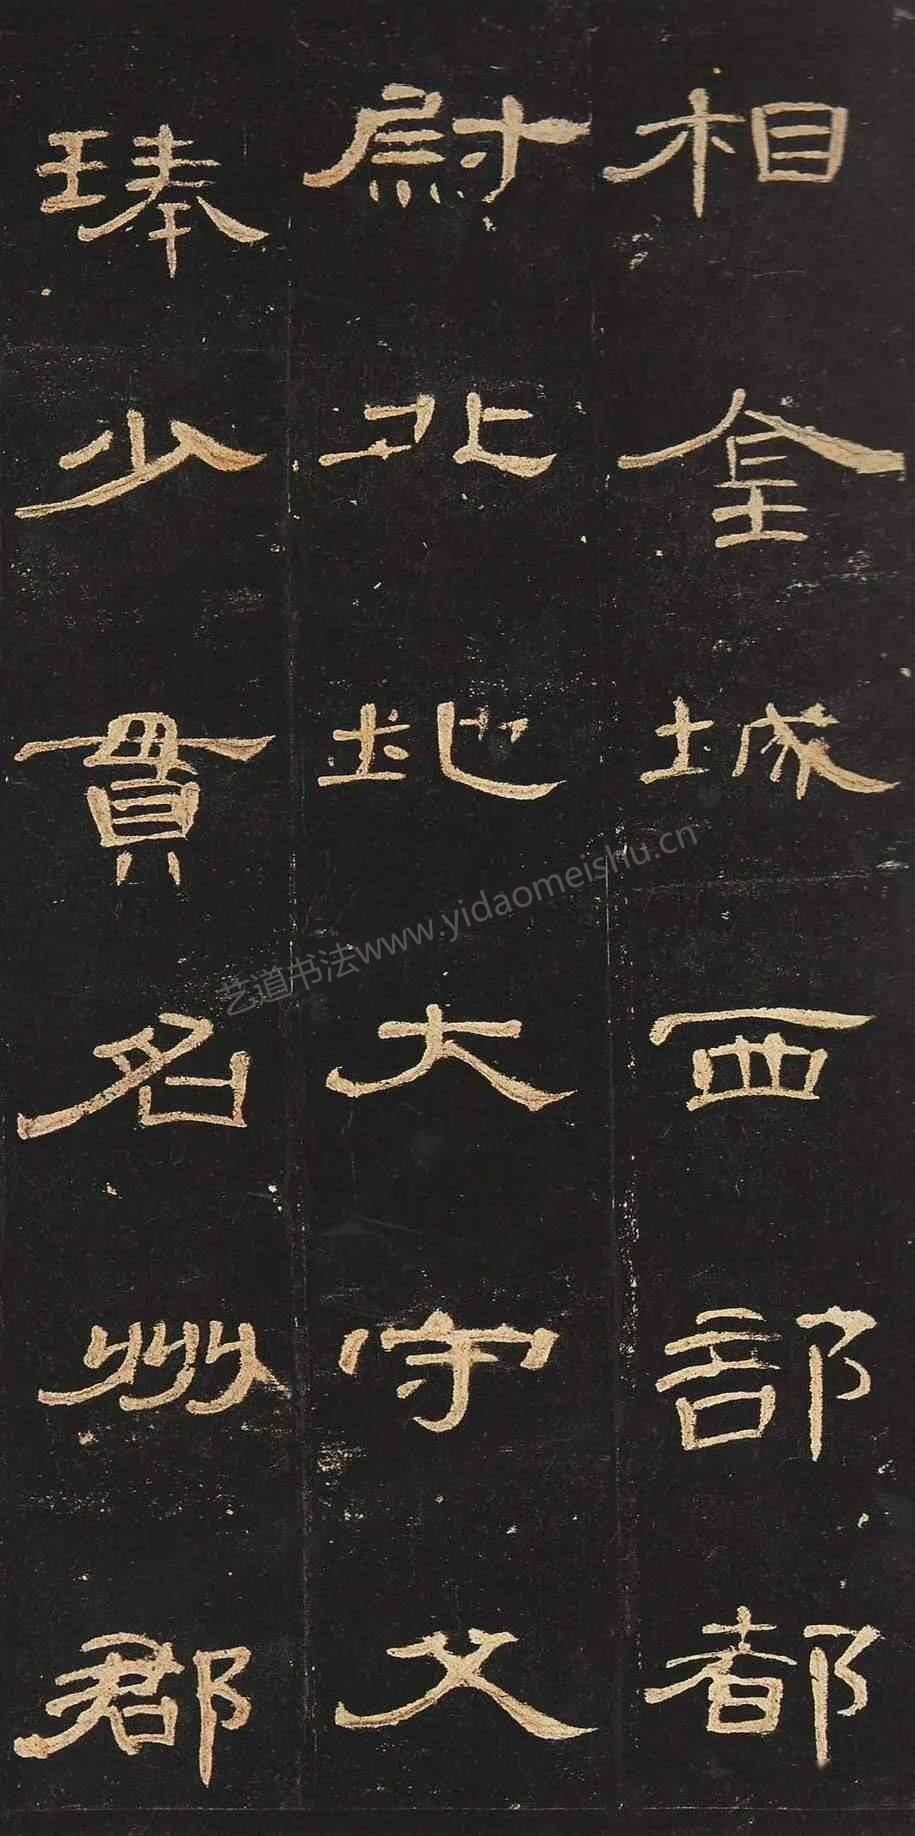 相金城西部都
尉北地大守父
琫少貫名州郡
艺道书法www.yidaomeishu.cn